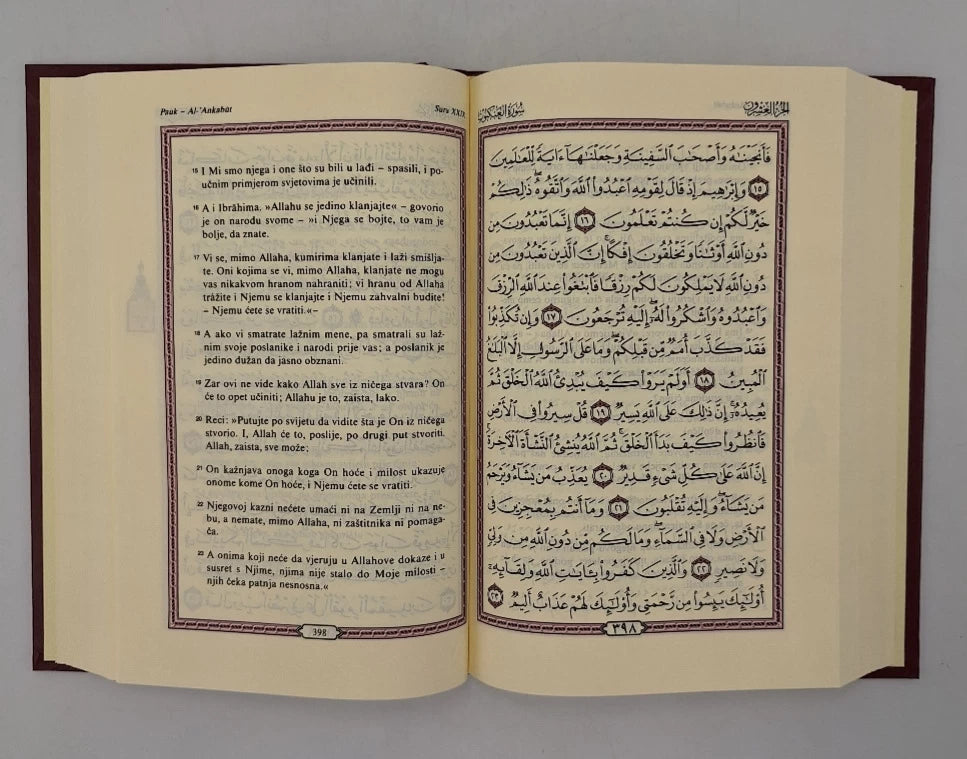 Pauk – Al-'Ankabūt
Sura XXIX
15 I Mi smo njega i one što su bili u lađi – spasili, i po-
učnim primjerom svjetovima je učinili.
16 A i Ibrāhima. »Allahu se jedino klanjajte« – govorio
je on narodu svome – »i Njega se bojte, to vam je
bolje, da znate.
17 Vi se, mimo Allaha, kumirima klanjate i laži smišlja-
te. Oni kojima se vi, mimo Allaha, klanjate ne mogu
vas nikakvom hranom nahraniti; vi hranu od Allaha
trážite i Njemu se klanjajte i Njemu zahvalni budite!
– Njemu ćete se vratiti.«–
18 A ako vi smatrate lažnim mene, pa smatrali su laž-
nim svoje poslanike i narodi prije vas; a poslanik je
jedino dužan da jasno obznani.
19 Zar ovi ne vide kako Allah sve iz ničega stvara? On
će to opet učiniti; Allahu je to, zaista, lako.
20 Reci: »Putujte po svijetu da vidite šta je On iz ničega
stvorio. I, Allah će to, poslije, po drugi put stvoriti.
Allah, zaista, sve može;
21 On kažnjava onoga koga On hoće i milost ukazuje
onome kome On hoće, i Njemu ćete se vratiti.
22 Njegovoj kazni nećete umaći ni na Zemlji ni na ne-
bu, a nemate, mimo Allaha, ni zaštitnika ni pomaga-
ča.
23 A onima koji neće da vjeruju u Allahove dokaze i u
susret s Njime, njima nije stalo do Moje milosti –
njih čeka patnja nesnosna.«
398
سورة العنكبوت
الجزء العشرون
فَأَنجَيْنَٰهُ وَأَصْحَٰبَ ٱلسَّفِينَةِ وَجَعَلْنَٰهَآ ءَايَةً لِّلْعَٰلَمِينَ
١٥ وَإِبْرَٰهِيمَ إِذْ قَالَ لِقَوْمِهِ ٱعْبُدُوا۟ ٱللَّهَ وَٱتَّقُوهُ ۖ ذَٰلِكُمْ
خَيْرٌ لَّكُمْ إِن كُنتُمْ تَعْلَمُونَ ١٦ إِنَّمَا تَعْبُدُونَ مِن
دُونِ ٱللَّهِ أَوْثَٰنًا وَتَخْلُقُونَ إِفْكًا ۚ إِنَّ ٱلَّذِينَ تَعْبُدُونَ مِن
دُونِ ٱللَّهِ لَا يَمْلِكُونَ لَكُمْ رِزْقًا فَٱبْتَغُوا۟ عِندَ ٱللَّهِ ٱلرِّزْقَ
وَٱعْبُدُوهُ وَٱشْكُرُوا۟ لَهُۥٓ ۖ إِلَيْهِ تُرْجَعُونَ ١٧ وَإِن تُكَذِّبُوا۟
فَقَدْ كَذَّبَ أُمَمٌ مِّن قَبْلِكُمْ ۖ وَمَا عَلَى ٱلرَّسُولِ إِلَّا ٱلْبَلَٰغُ
ٱلْمُبِينُ ١٨ أَوَلَمْ يَرَوْا۟ كَيْفَ يُبْدِئُ ٱللَّهُ ٱلْخَلْقَ ثُمَّ
يُعِيدُهُۥٓ ۚ إِنَّ ذَٰلِكَ عَلَى ٱللَّهِ يَسِيرٌ ١٩ قُلْ سِيرُوا۟ فِى ٱلْأَرْضِ
فَٱنظُرُوا۟ كَيْفَ بَدَأَ ٱلْخَلْقَ ۚ ثُمَّ ٱللَّهُ يُنشِئُ ٱلنَّشْأَةَ ٱلْءَاخِرَةَ ۚ
إِنَّ ٱللَّهَ عَلَىٰ كُلِّ شَىْءٍ قَدِيرٌ ٢٠ يُعَذِّبُ مَن يَشَآءُ وَيَرْحَمُ
مَن يَشَآءُ ۖ وَإِلَيْهِ تُقْلَبُونَ ٢١ وَمَآ أَنتُم بِمُعْجِزِينَ فِى
ٱلْأَرْضِ وَلَا فِى ٱلسَّمَآءِ ۖ وَمَا لَكُم مِّن دُونِ ٱللَّهِ مِن وَلِىٍّ
وَلَا نَصِيرٍ ٢٢ وَٱلَّذِينَ كَفَرُوا۟ بِـَٔايَٰتِ ٱللَّهِ وَلِقَآئِهِۦٓ
أُو۟لَٰٓئِكَ يَئِسُوا۟ مِن رَّحْمَتِى وَأُو۟لَٰٓئِكَ لَهُمْ عَذَابٌ أَلِيمٌ ٢٣
٣٩٨